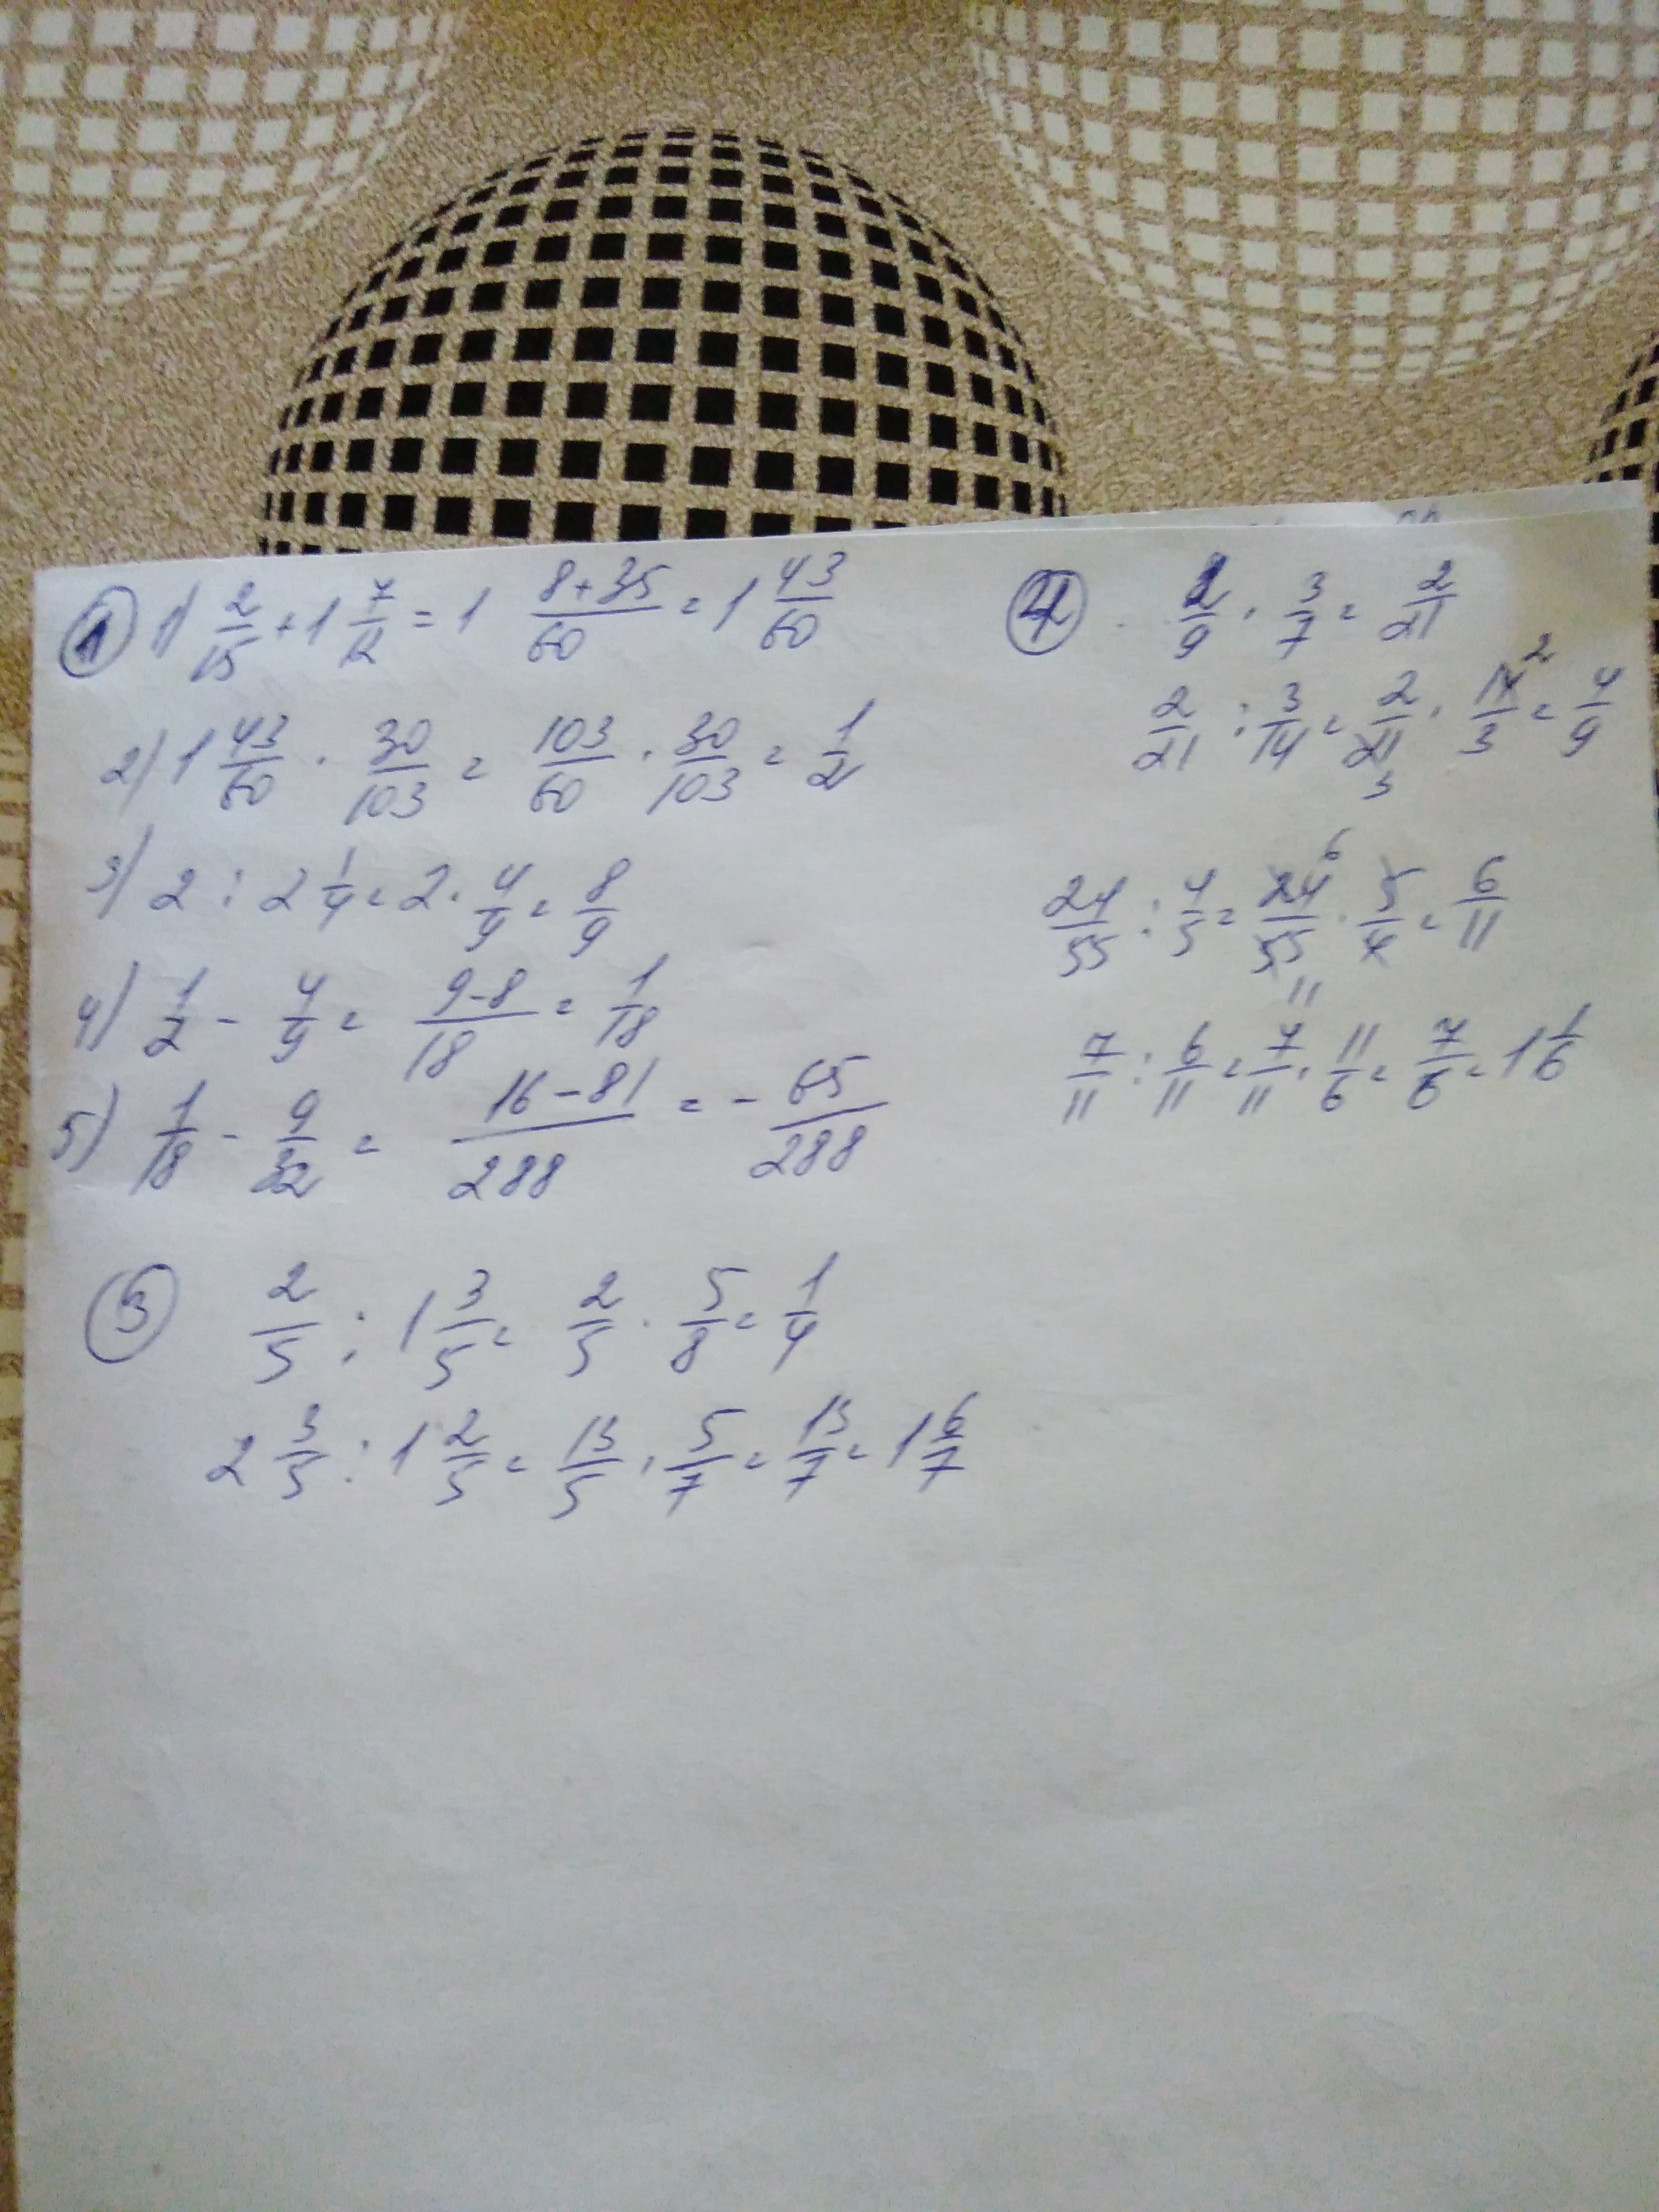 ① 1) 2/15 + 1 7/12 = 1 (8+35)/60 = 1 43/60
2) 1 43/60 · 30/103 = 103/60 · 30/103 = 1/2
3) 2 : 2 1/4 = 2 · 4/9 = 8/9
4) 1/2 - 4/9 = (9-8)/18 = 1/18
5) 1/18 - 9/32 = (16-81)/288 = - 65/288
③ 2/5 : 1 3/5 = 2/5 · 5/8 = 1/4
2 3/5 : 1 2/5 = 13/5 · 5/7 = 13/7 = 1 6/7
④ 2/9 · 3/7 = 2/21
2/21 : 3/14 = 2/21 3 · 14 2/3 = 4/9
24/55 : 4/5 = 24 6/55 11 · 5/4 = 6/11
7/11 : 6/11 = 7/11 · 11/6 = 7/6 = 1 1/6